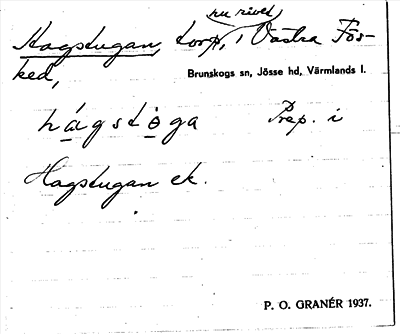 nu rivet,
Hagstugan, torp, i Västra Fös-
ked,
Brunskogs sn, Jösse hd, Värmlands l.
hágstoga Prep. i
Hagstugan ek.
P. O. GRANÉR 1937.